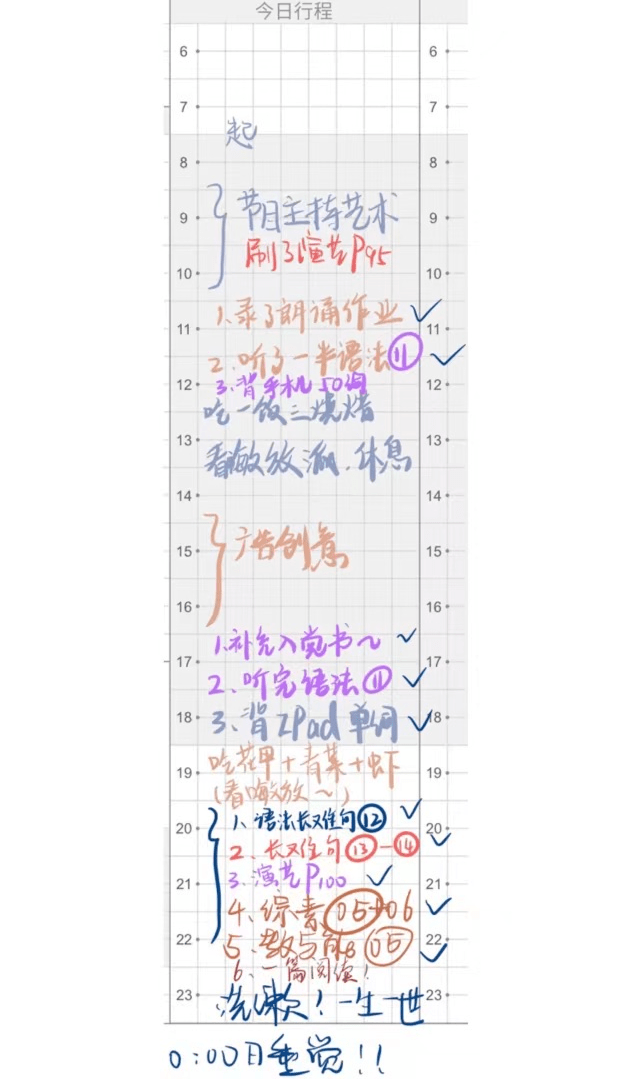 今日行程
6 6
7 7
起
8 8
节目主持艺术
9 9
刷了演艺P95
10 10
1、录了朗诵作业 ✓
11 11
2、听了一半语法⑪ ✓
12 12
3、背手机50词
吃一饭三烧烤
13 13
看嗨放派、休息
14 14
广告创意
15 15
16 16
1、补充入党书~ ✓
17 17
2、听完语法⑪ ✓
3、背ZPad单词 ✓
18 18
吃花甲+青菜+虾
19 19
(看嗨放~)
1、语法长难句⑫ ✓
20 20
2、长难句⑬-⑭ ✓
3、演艺P100 ✓
21 21
4、综素05+06 ✓
22 22
5、教与能05 ✓
6、一篇阅读!
23 23
洗漱!一生一世
0:00睡觉!!